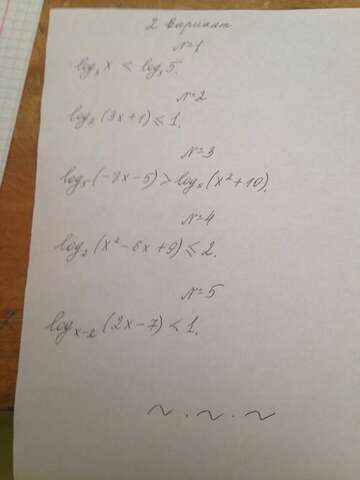 2 вариант
№1
log₃ x < log₃ 5.
№2
log₂ (3x+1) ≤ 1.
№3
(-7x-5) > (x²+10).
№4
log₂ (x²-6x+9) ≤ 2.
№5
logₓ₋₂ (2x-7) < 1.
~ . ~ . ~